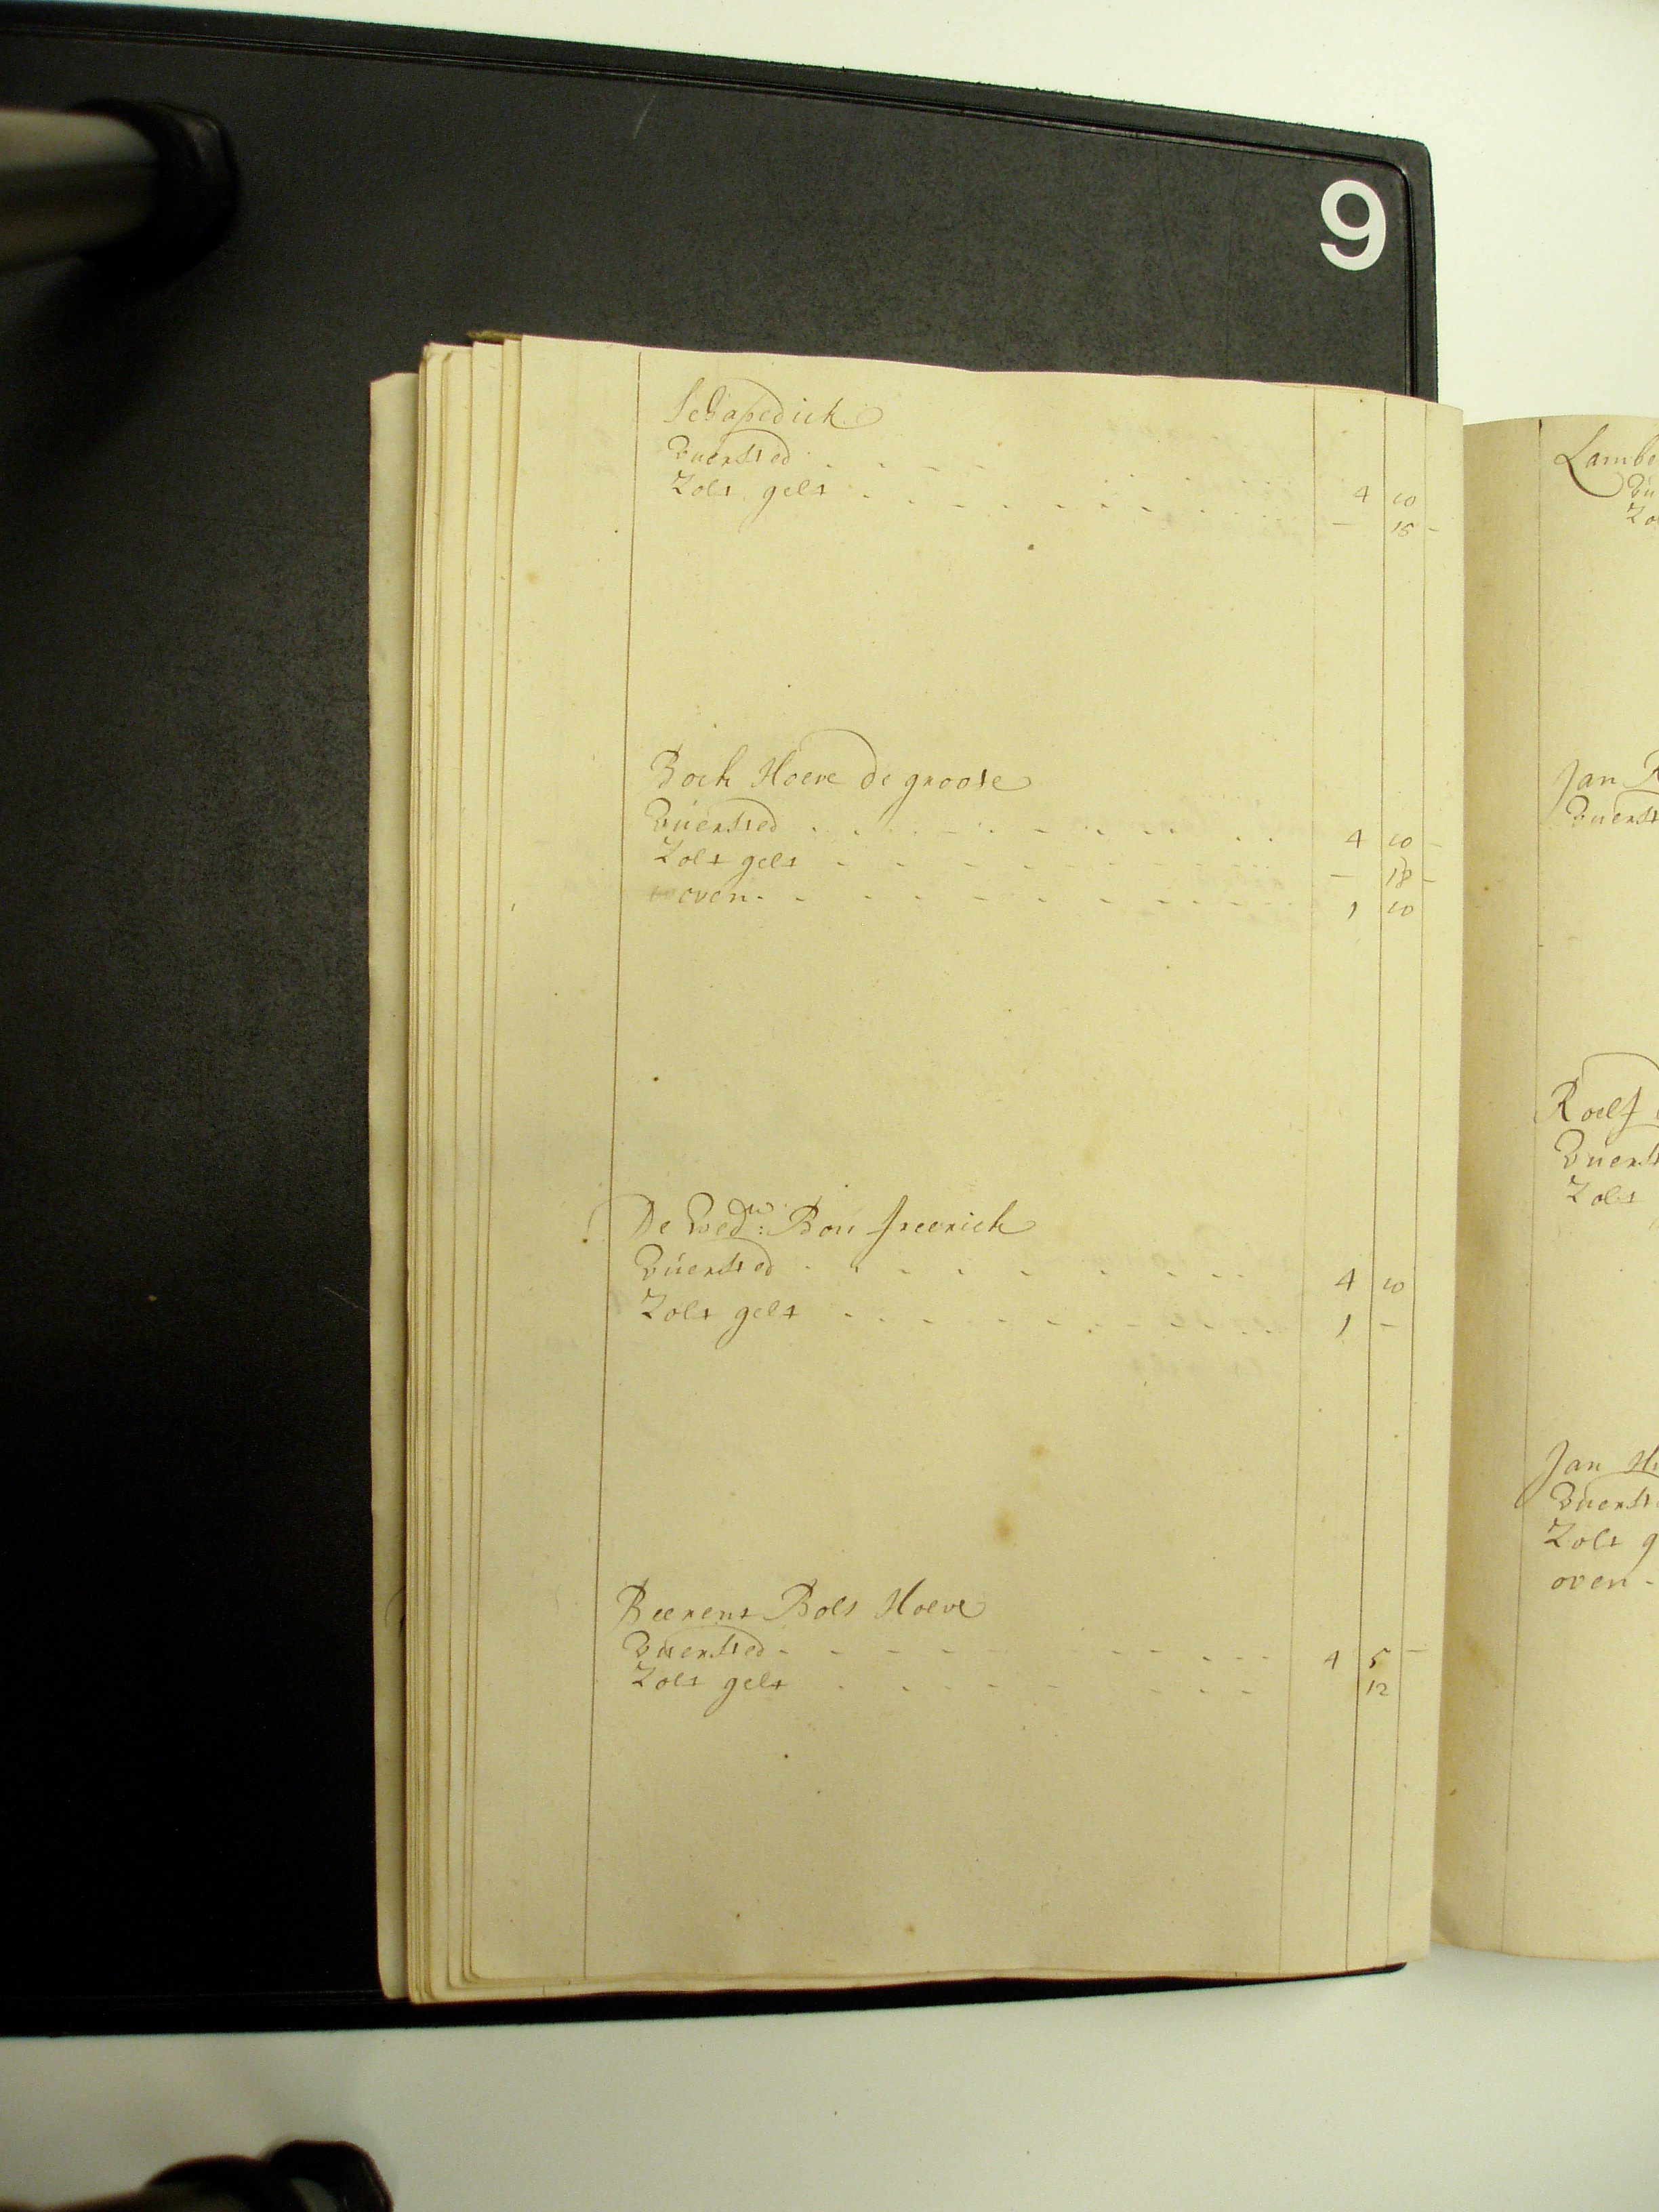 9
Schapedick
Vuersted - - - - 4 10
Zolt gelt - - - - - 15 -
Bock Hoeve de groote
Vuersted - - - - 4 10 -
Zolt gelt - - - - - 18 -
oven - - - - 1 10
De Wedw: Bou freerick
Vuersted - - - - 4 10
Zolt gelt - - - - 1 -
Beerent Bols Hoeve
Vuersted - - - - 4 5 -
Zolt gelt - - - - 12
Lambe
Vu
Zo
Jan
Vuerst
Roelf
Vuerst
Zolt
Jan
Vuerst
Zolt g
oven -